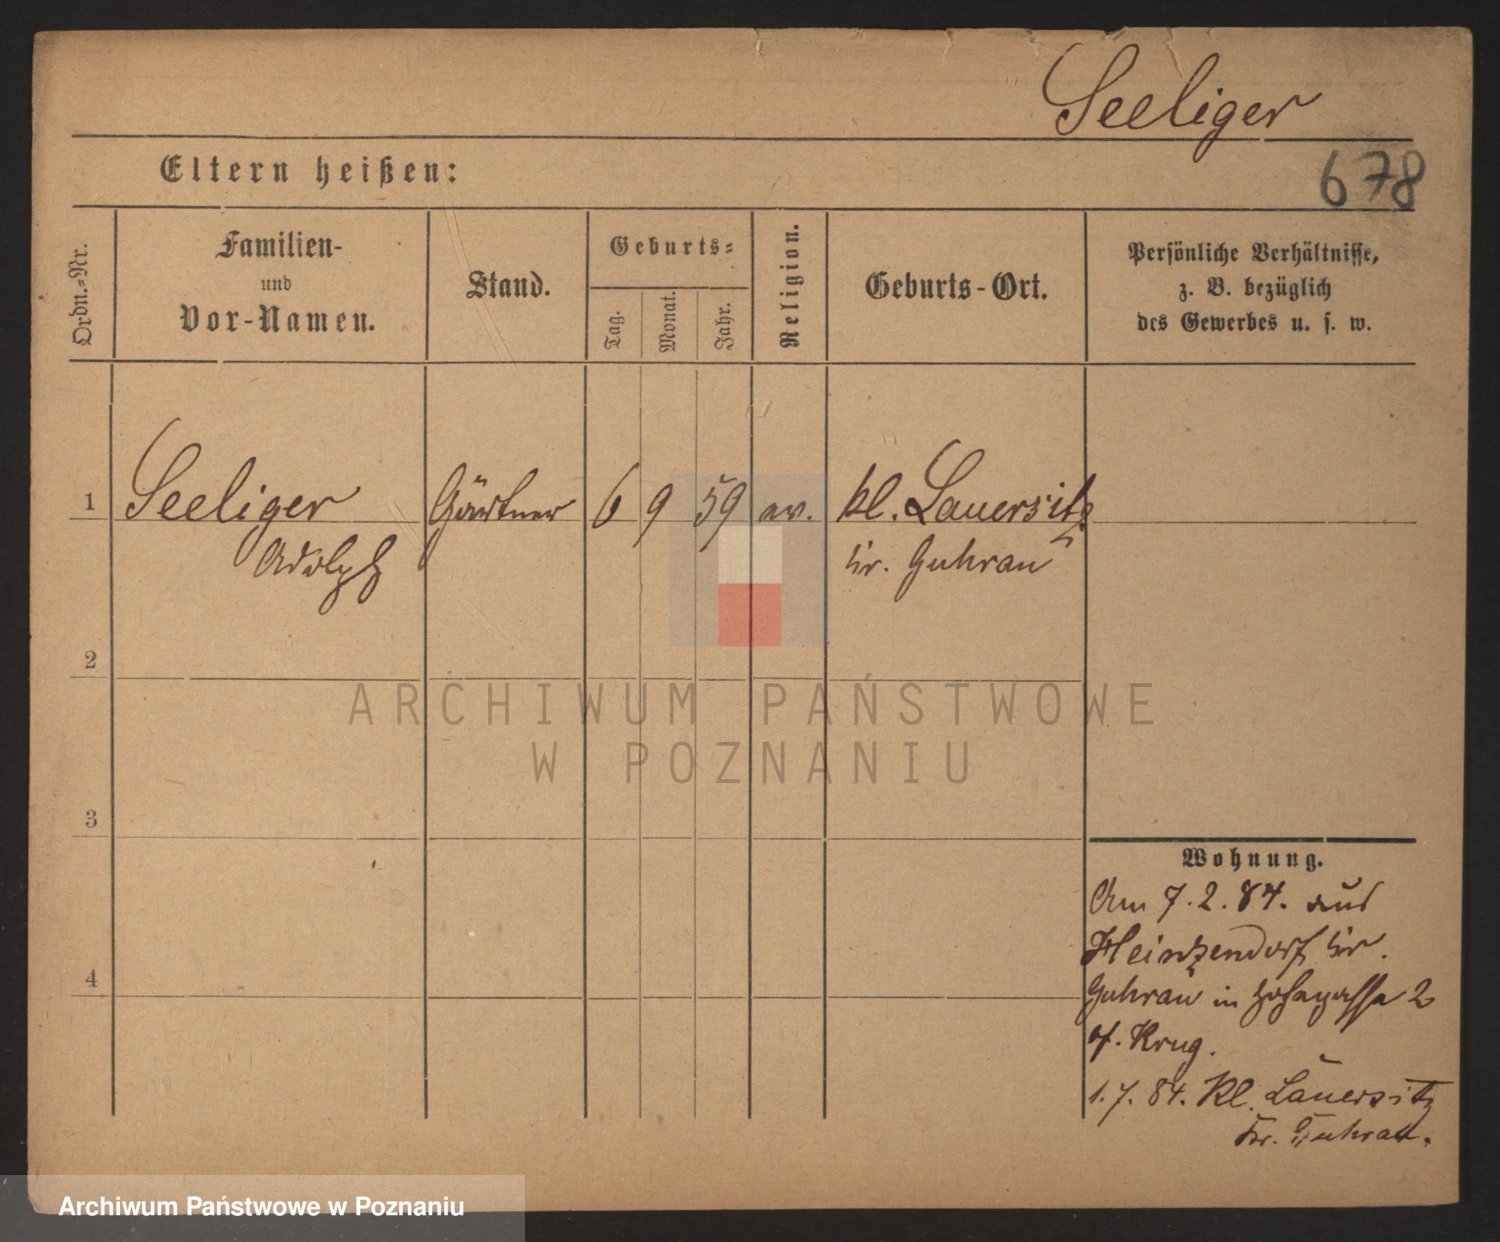 Seeliger
678
Eltern heißen:
Ordn.-Nr.
Familien-
und
Vor-Namen.
Stand.
Geburts-
Tag.
Monat.
Jahr.
Religion.
Geburts-Ort.
Persönliche Verhältnisse,
z. B. bezüglich
des Gewerbes u. s. w.
1 Seeliger Gärtner 6 9 59 ev. Kl. Lauersitz
Adolph Kr. Guhrau
2
ARCHIWUM PAŃSTWOWE
W POZNANIU
3
Wohnung.
Am 7. 2. 84. aus
Heinzendorf Kr.
4
Guhrau in 2
Krug.
1. 7. 84. Kl. Lauersitz
Kr. Guhrau.
Archiwum Państwowe w Poznaniu